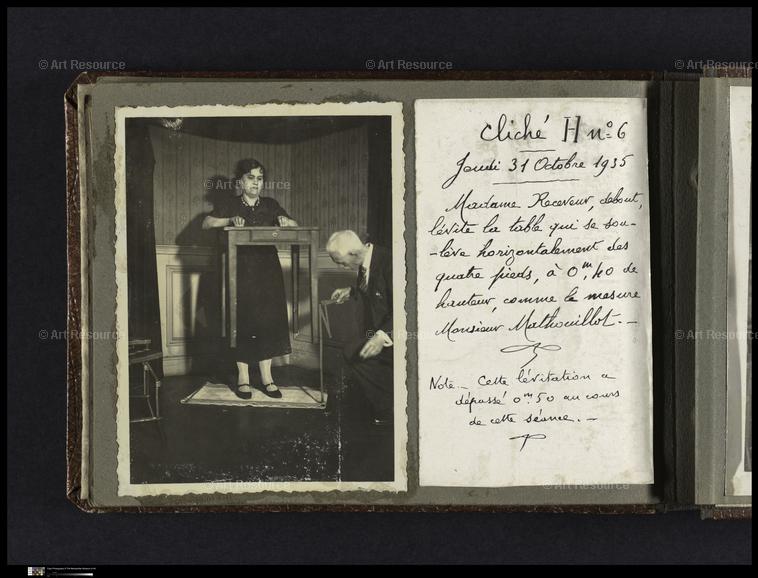 © Art Resource
© Art Resource
© Art Resource
cliché H nº 6
Jeudi 31 Octobre 1935
Madame Receveur, debout,
lévite la table qui se sou-
-lève horizontalement des
quatre pieds, à 0m,40 de
hauteur, comme le mesure
Monsieur Mathouillot. -
Note. - Cette lévitation a
dépassé 0m50 au cours
de cette séance. -
© Art Resource
© Art Resource
© Art Resource
© Art Resource
© Art Resource
© Art Resource
© Art Resource
© Art Resource